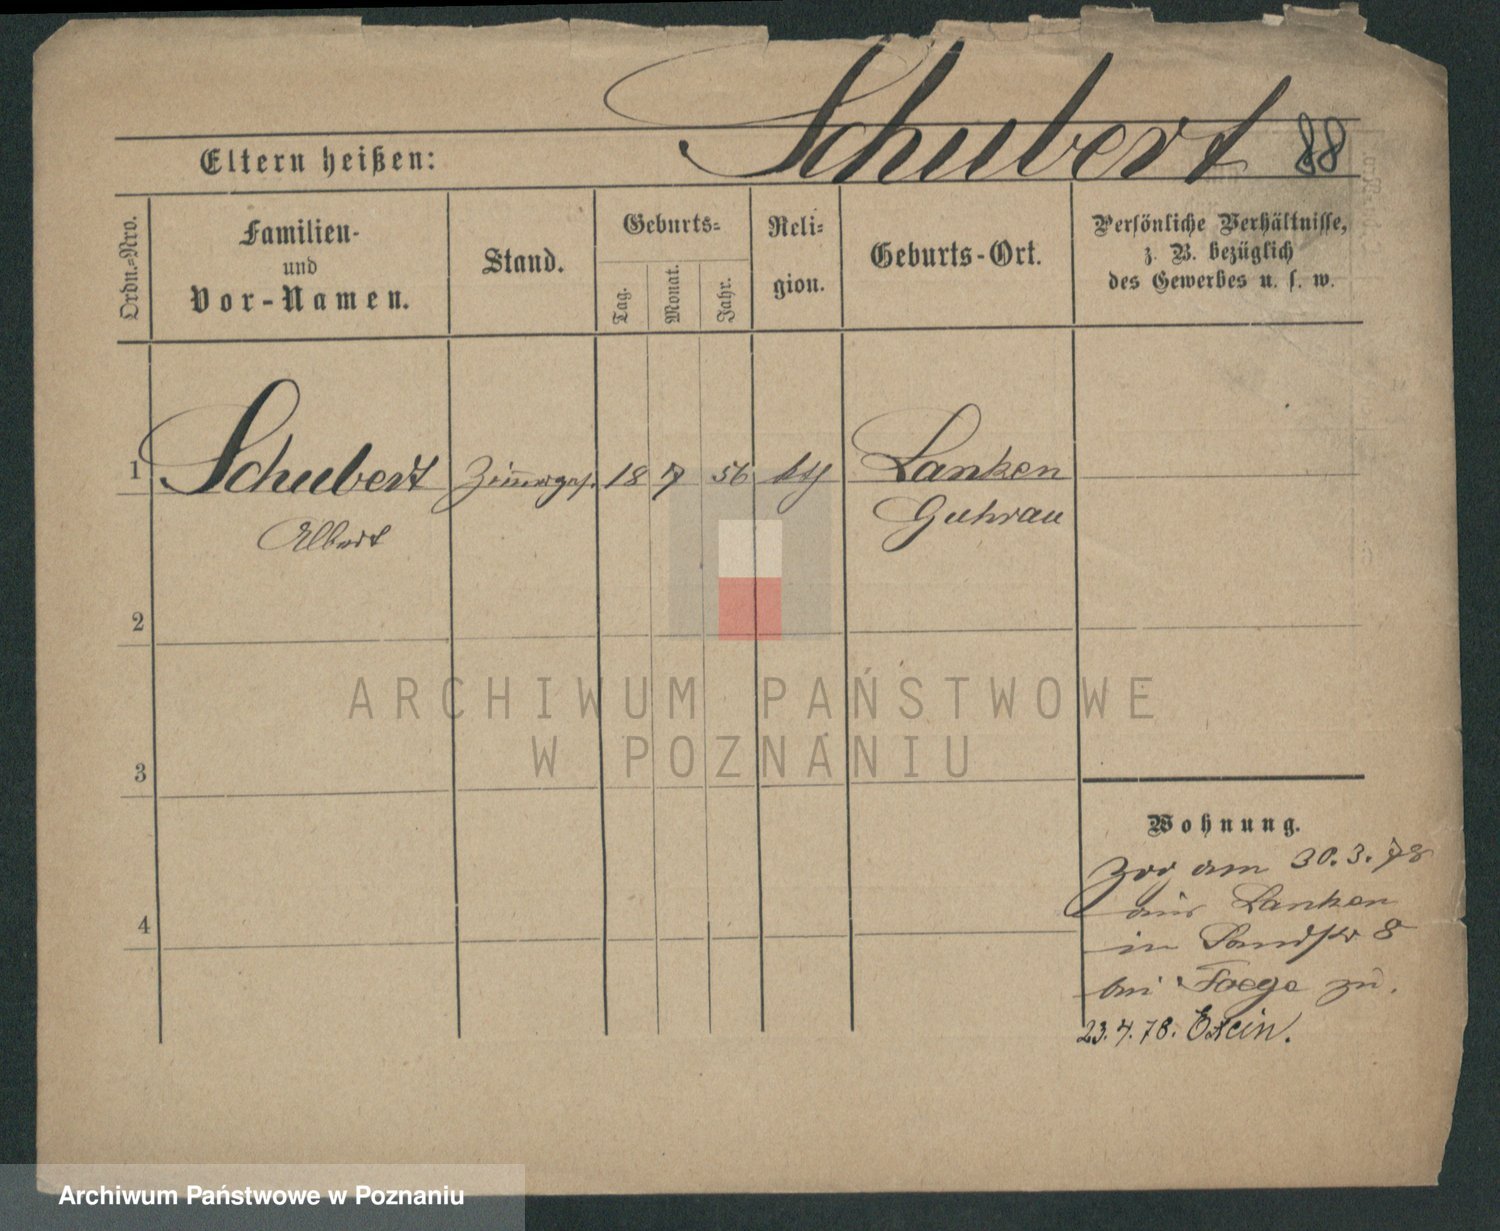 Schubert 88
Eltern heißen:
Ordn.-Nro.
Familien-
und
Vor-Namen.
Stand.
Geburts-
Tag.
Monat.
Jahr.
Reli-
gion.
Geburts-Ort.
Persönliche Verhältnisse,
z. B. bezüglich
des Gewerbes u. s. w.
1 Schubert Zim̄erges. 18 7 56 kth Lanken
Albert Guhrau
2
3
4
ARCHIWUM PAŃSTWOWE
W POZNANIU
Wohnung.
Zog am 30.3.78
aus Lanken
in 8
bei zu.
23.4.78. Exin.
Archiwum Państwowe w Poznaniu